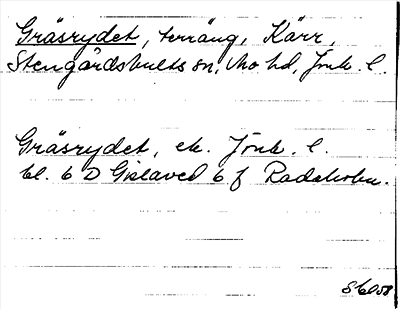 Gräsrydet, terräng, Kärr,
Stengårdshults sn, Mo hd, Jönk. l.
Gräsrydet, ek. Jönk. l.
bl. 6 D Gislaved 6 f Radeholm.